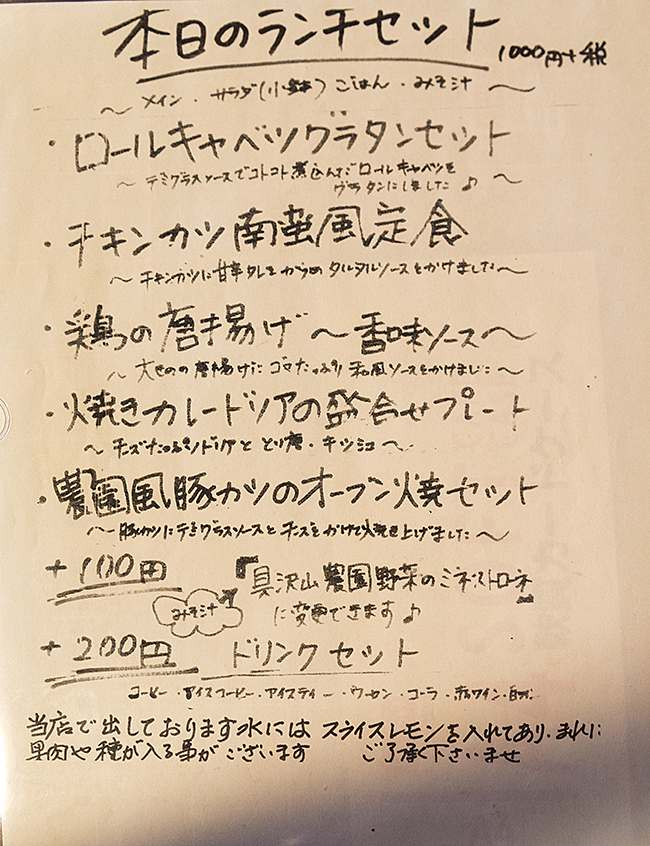 本日のランチセット 1000円+税
〜 メイン・サラダ(小鉢) ごはん・みそ汁 〜
・ロールキャベツグラタンセット
〜 デミグラスソースでコトコト煮込んだロールキャベツを
グラタンにしました♪ 〜
・チキンカツ南蛮風定食
〜 チキンカツに甘辛タレをからめタルタルソースをかけました 〜
・鶏の唐揚げ 〜香味ソース〜
〜 大きめの唐揚げにゴマたっぷり和風ソースをかけました 〜
・焼きカレードリアの盛合せプレート
〜 チーズたっぷりドリアととり唐・キッシュ 〜
・農園風豚カツのオーブン焼セット
〜 豚カツにデミグラスソースとチーズをかけて焼き上げました 〜
+100円 『具沢山農園野菜のミネストローネ』
みそ汁 に変更できます♪
+200円 ドリンクセット
コーヒー・アイスコーヒー・アイスティー・ウーロン・コーラ・赤ワイン・白ワイン
当店で出しております水には スライスレモンを入れてあり、まれに
果肉や種が入る事がございます ご了承下さいませ